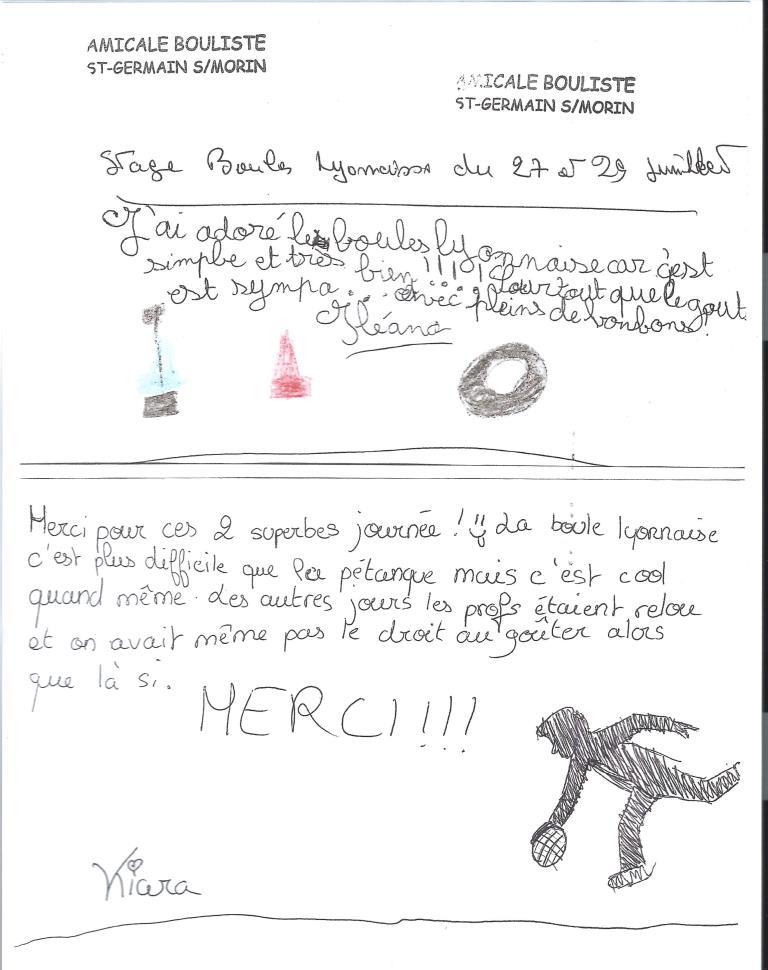 AMICALE BOULISTE
ST-GERMAIN S/MORIN
AMICALE BOULISTE
ST-GERMAIN S/MORIN
Stage Boules Lyonnaisse du 27 et 29 juillet
J'ai adoré les boules lyonnaise car c'est
simple et très bien !!!! 
est sympa... surtout que le gout
avec pleins de bonbons.
Iléana
Merci pour ces 2 superbes journée ! La boule lyonnaise
c'est plus difficile que la pétanque mais c'est cool
quand même. Les autres jours les profs étaient relou
et on avait même pas le droit au goûter alors
que là si.
MERCI !!!
Kiara